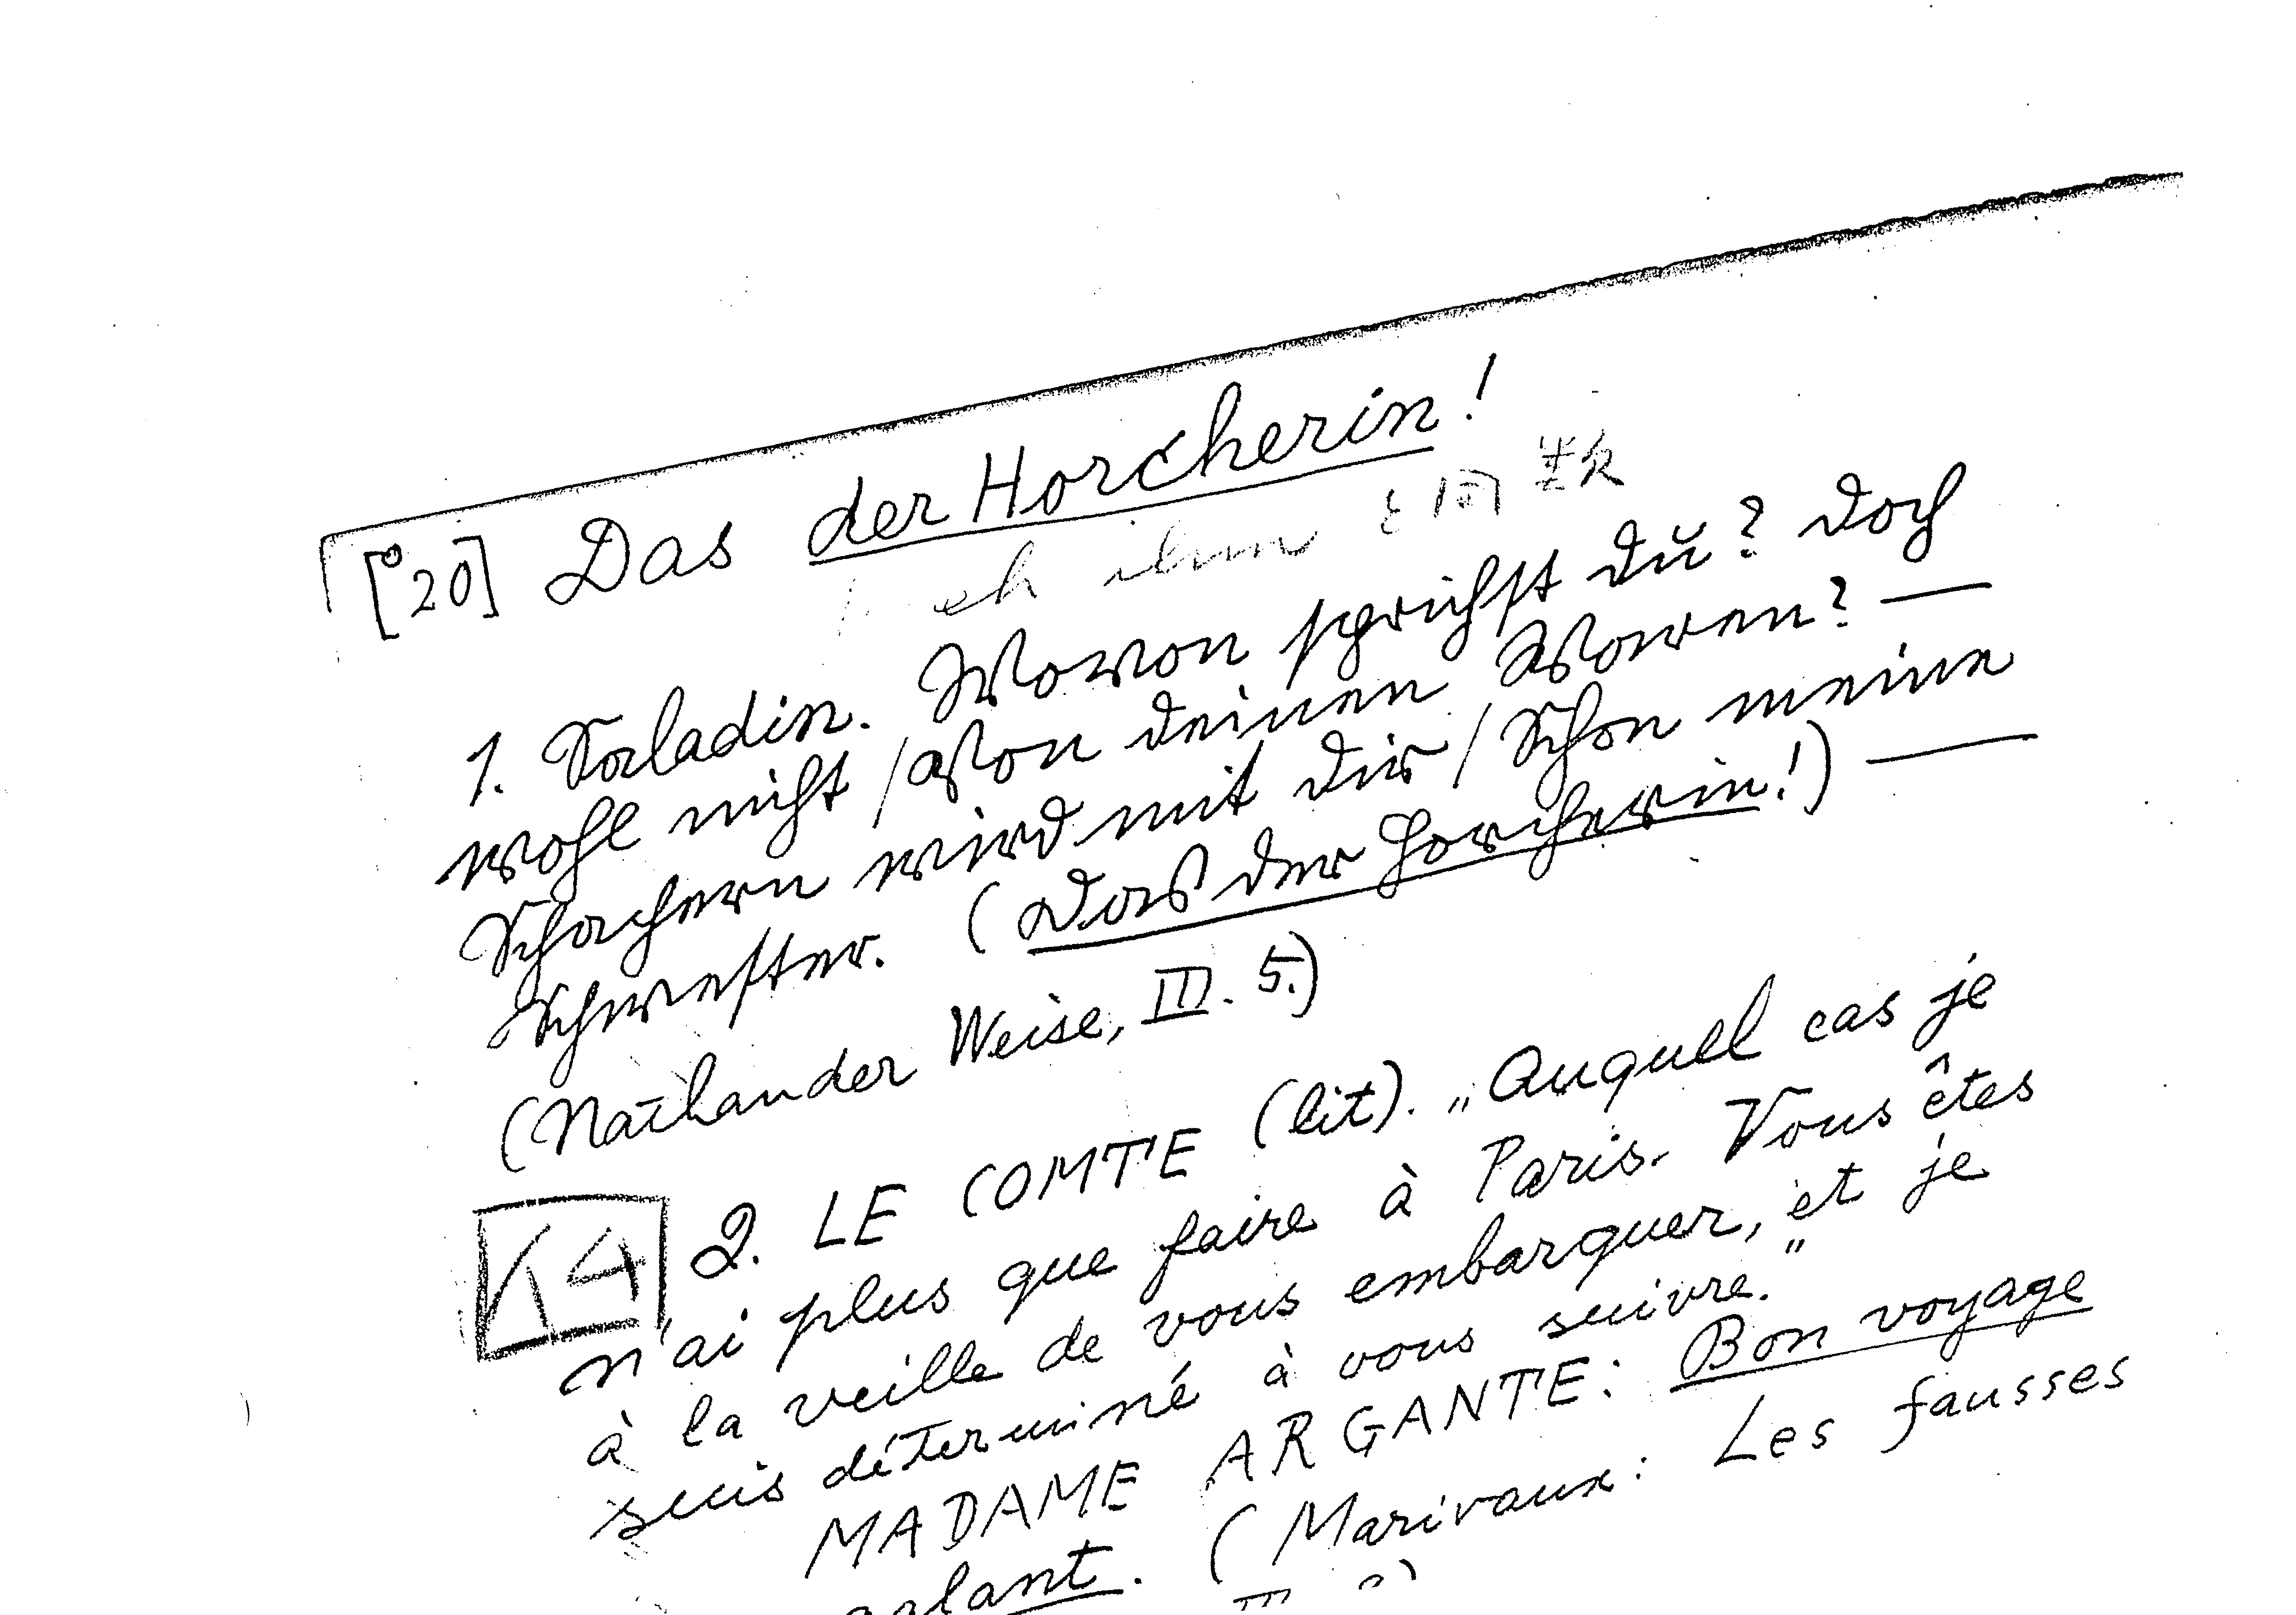 [°20] Das der Horcherin!
ihm
1. Saladin. Wovon sprichst du? doch
wohl nicht / Von deinen Waren? —
Schachern wird mit dir / Schon meine
Schwester. (Das der Horcherin!) —
(Nathan der Weise, III. 5.)
K4 2. LE COMTE (lit). „Auquel cas je
n'ai plus que faire à Paris. Vous êtes
à la veille de vous embarquer, et je
suis déterminé à vous suivre."
MADAME ARGANTE: Bon voyage
galant. (Marivaux: Les fausses